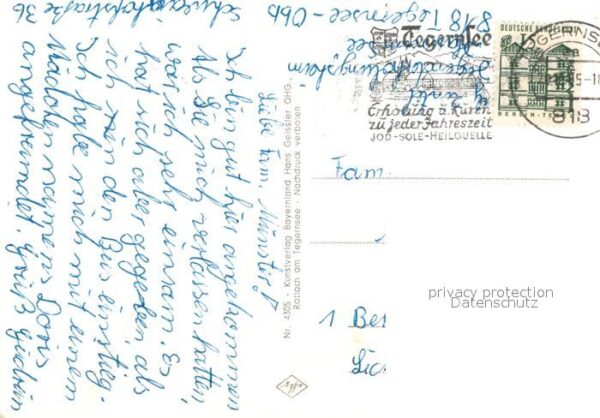 Liebe Fam. Münster!
Ich bin gut hier angekommen
Als Sie mich verlassen hatten,
war ich sehr einsam. Es
hat sich aber gegeben als
ich in den Bus einstieg.
Ich habe mich mit einem
Mädchen namens Doris
angefreundet. Gruß
8918 Tegernsee-Obb
Schwaighofstraße 36
Nr. 4305 - Kunstverlag Bayernland Hans Geissler OHG.,
Rottach am Tegernsee - Nachdruck verboten
Tegernsee
Erholung u. Kuren
zu jeder Jahreszeit
JOD-SOLE-HEILQUELLE
DEUTSCHE BUNDESPOST
15
TEGERNSEE
a
-5-18
818
Fam.
1 Ber
Lic
privacy protection
Datenschutz